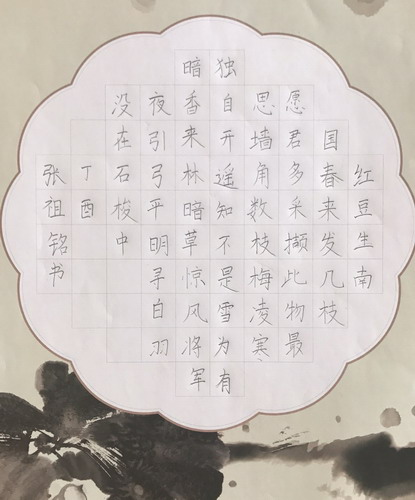 红豆生南
国春来发几枝
愿君多采撷此物最
思墙角数枝梅凌寒
独自开遥知不是雪为有
暗香来林暗草惊风将军
夜引弓平明寻白羽
没在石棱中
丁酉
张祖铭书